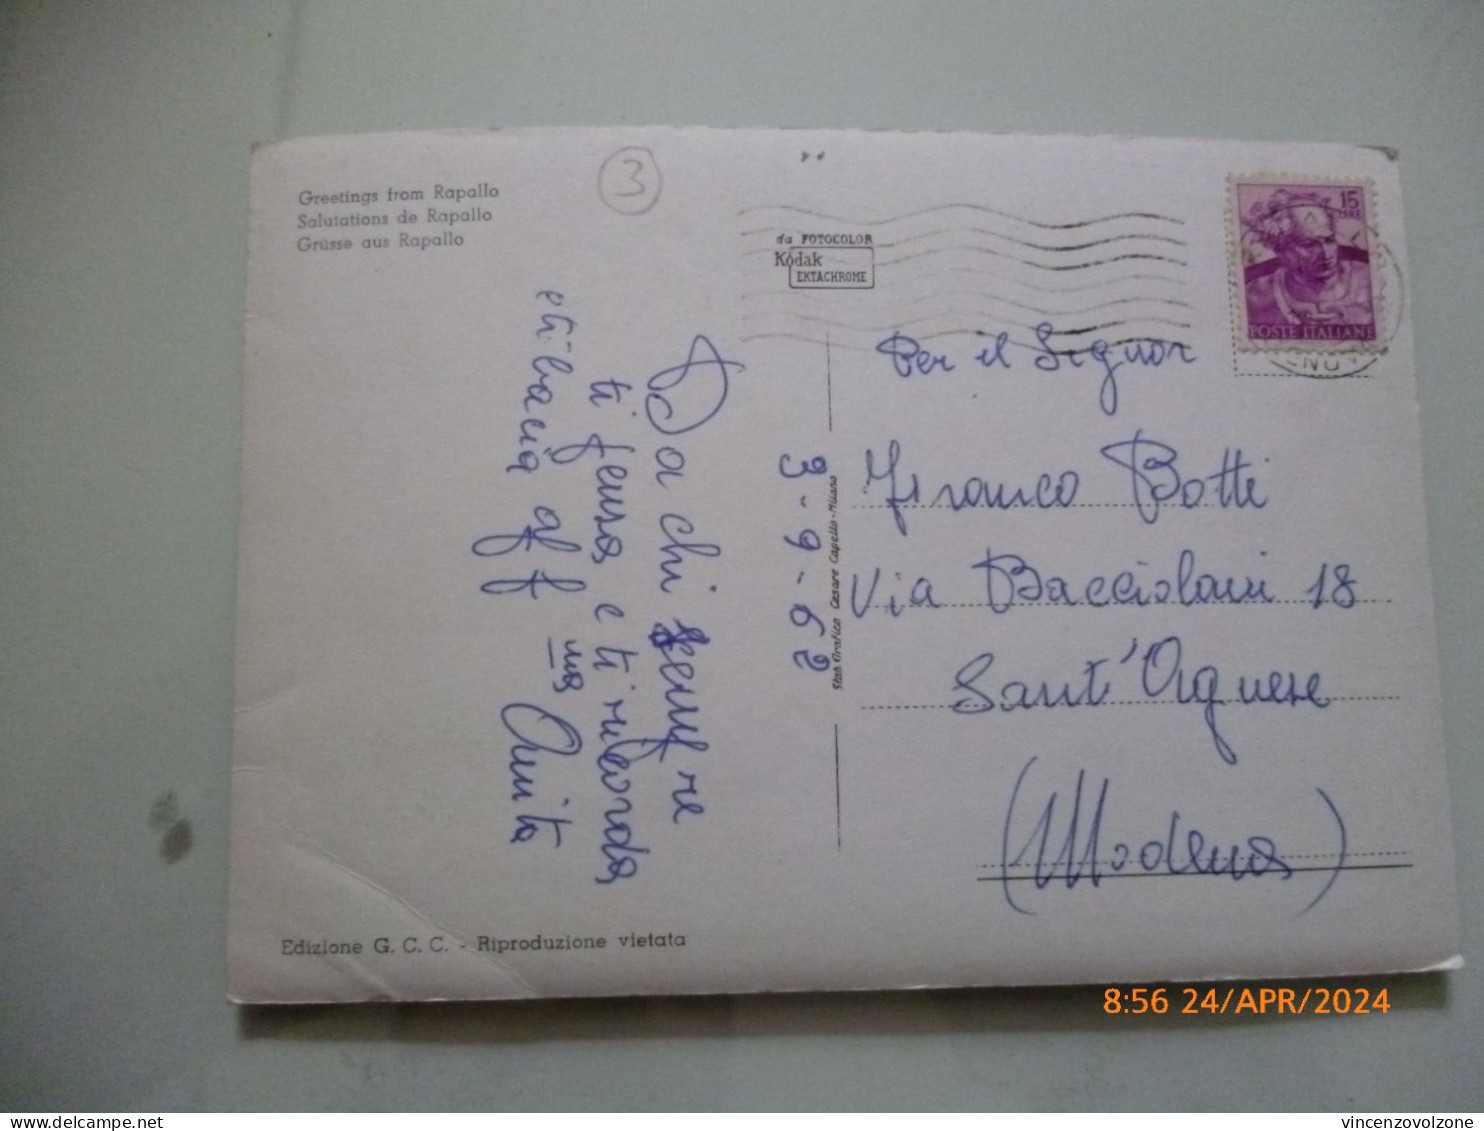 Greetings from Rapallo
Salutations de Rapallo
Grüsse aus Rapallo
3
da FOTOCOLOR
Kodak
EKTACHROME
15
LIRE
POSTE ITALIANE
Da chi sempre
ti pensa e ti ricorda
e ti bacia aff
ma Anita
3-9-62
Stab. Grafico Cesare Capello - Milano
Per il Signor
Franco Botti
Via Bacciolani 18
Sant'Agnese
(Modena)
Edizione G. C. C. - Riproduzione vietata
8:56 24/APR/2024
vincenzovolzone